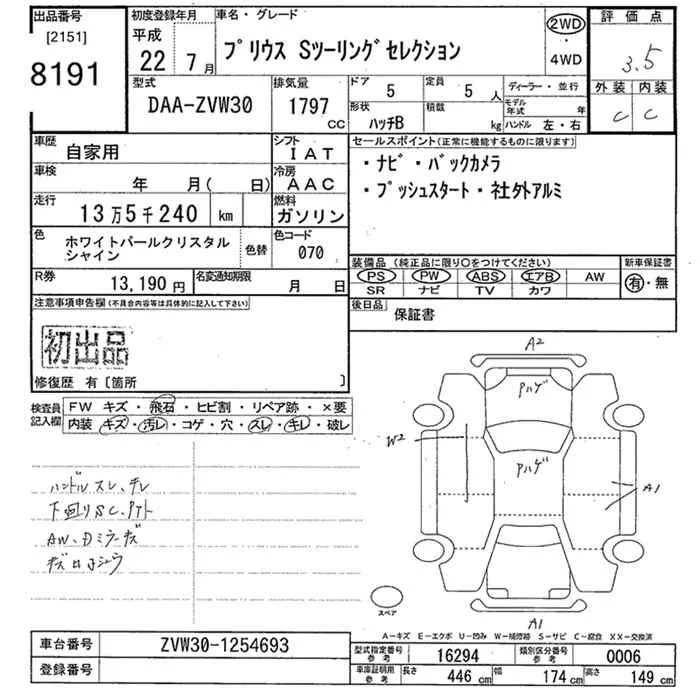 出品番号
[2151]
8191
初度登録年月
平成
22年 7月
車名・グレード
プリウス Sツーリングセレクション
2WD
・
4WD
評価点
3.5
外装 内装
C C
型式
DAA-ZVW30
排気量
1797
CC
ドア
5
定員
5 人
形状
ハッチB
積載
kg
ディーラー・並行
モデル年式 年
ハンドル 左・右
車歴
自家用
シフト
IAT
車検
年 月( 日)
冷房
AAC
走行
13万5千240 km
燃料
ガソリン
色
ホワイトパールクリスタル
シャイン
色替
色コード
070
R券
13,190円
名変通知期限
月 日
セールスポイント(正常に機能するものに限ります)
・ナビ・バックカメラ
・プッシュスタート・社外アルミ
装備品(純正品に限り○をつけてください)
PS PW ABS エアB AW
SR ナビ TV カワ
新車保証書
有・無
後日品
保証書
注意事項申告欄(不具合内容等は具体的に記入して下さい)
初出品
修復歴 有〔箇所 〕
検査員
記入欄
FW キズ・飛石・ヒビ割・リペア跡・×要
内装 キズ・汚レ・コゲ・穴・スレ・キレ・破レ
ハンドルスレ、チレ
下回りSC、PTト
AW、Dミラーキズ
A2
Pハゲ
W2
Pハゲ
A1
A1
スペア
A−キズ E−エクボ U−凹み W−補修跡 S−サビ C−腐食 XX−交換済
車台番号
ZVW30-1254693
登録番号
型式指定番号
参考
16294
類別区分番号
参考
0006
車庫証明用
参考
長さ
446 cm
幅
174 cm
高さ
149 cm